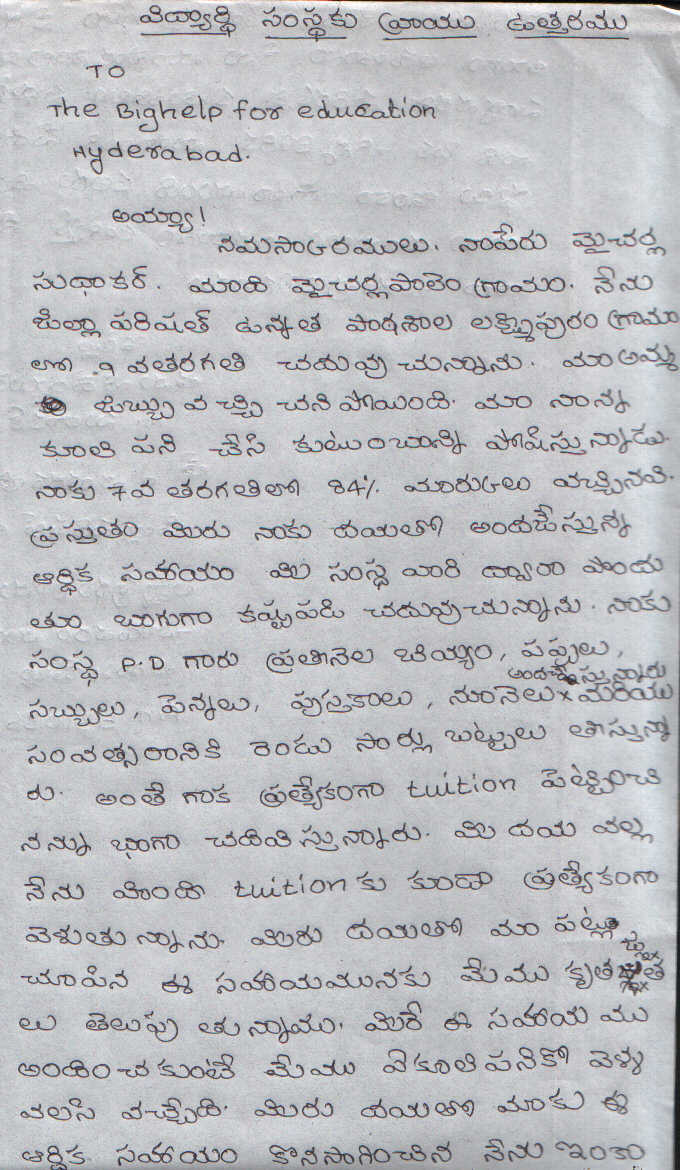 విద్యార్థి సంస్థకు వ్రాయు ఉత్తరము
TO
The Bighelp for education
Hyderabad.
అయ్యా!
నమసాంరములు. నాపేరు మైచర్ల
సుధాకర్. మాది మైచర్లపాలెం గ్రామం. నేను
జిల్లా పరిషత్ ఉన్నత పాఠశాల లక్ష్మీపురం గ్రామం
లో .9 వతరగతి చదువు చున్నాను. మా అమ్మ
జబ్బు వచ్చి చని పోయింది. మా నాన్న
కూలి పని చేసి కుటుంబాన్ని పోషిస్తు న్నాడు.
నాకు 7వ తరగతిలో 84% మారుంలు వచ్చినవి.
ప్రస్తుతం మీరు నాకు దయతో అందజేస్తున్న
ఆర్థిక సహాయం మీ సంస్థ వారి ద్వారా పొందు
తూ బాగుగా కష్టపడి చదువుచున్నాను. నాకు
సంస్థ P.D గారు ప్రతినెల బియ్యం, పప్పులు,
అందచేస్తున్నారు
సబ్బులు, పెన్నులు, పుస్తకాలు, నూనెలు x మరియు
సంవత్సరానికి రెండు సార్లు బట్టలు తీస్తున్నా
రు. అంతే గాక ప్రత్యేకంగా tuition పెట్టించి
నన్ను బాగా చదివి స్తున్నారు. మీ దయ వల్ల
నేను హింది tuition కు కూడా ప్రత్యేకంగా
వెళుతు న్నాను. మీరు దయతో మా పట్ల
చూపిన ఈ సహాయమునకు మేము కృతజ్ఞత
లు తెలుపు తున్నాము. మీరే ఈ సహాయ ము
అందించ కుంటే మేము ఏకూలి పనికో వెళ్ళ
వలసి వచ్చేది. మీరు దయతో మాకు ఈ
ఆర్థిక సహాయం కొనసాగించిన నేను ఇంకా